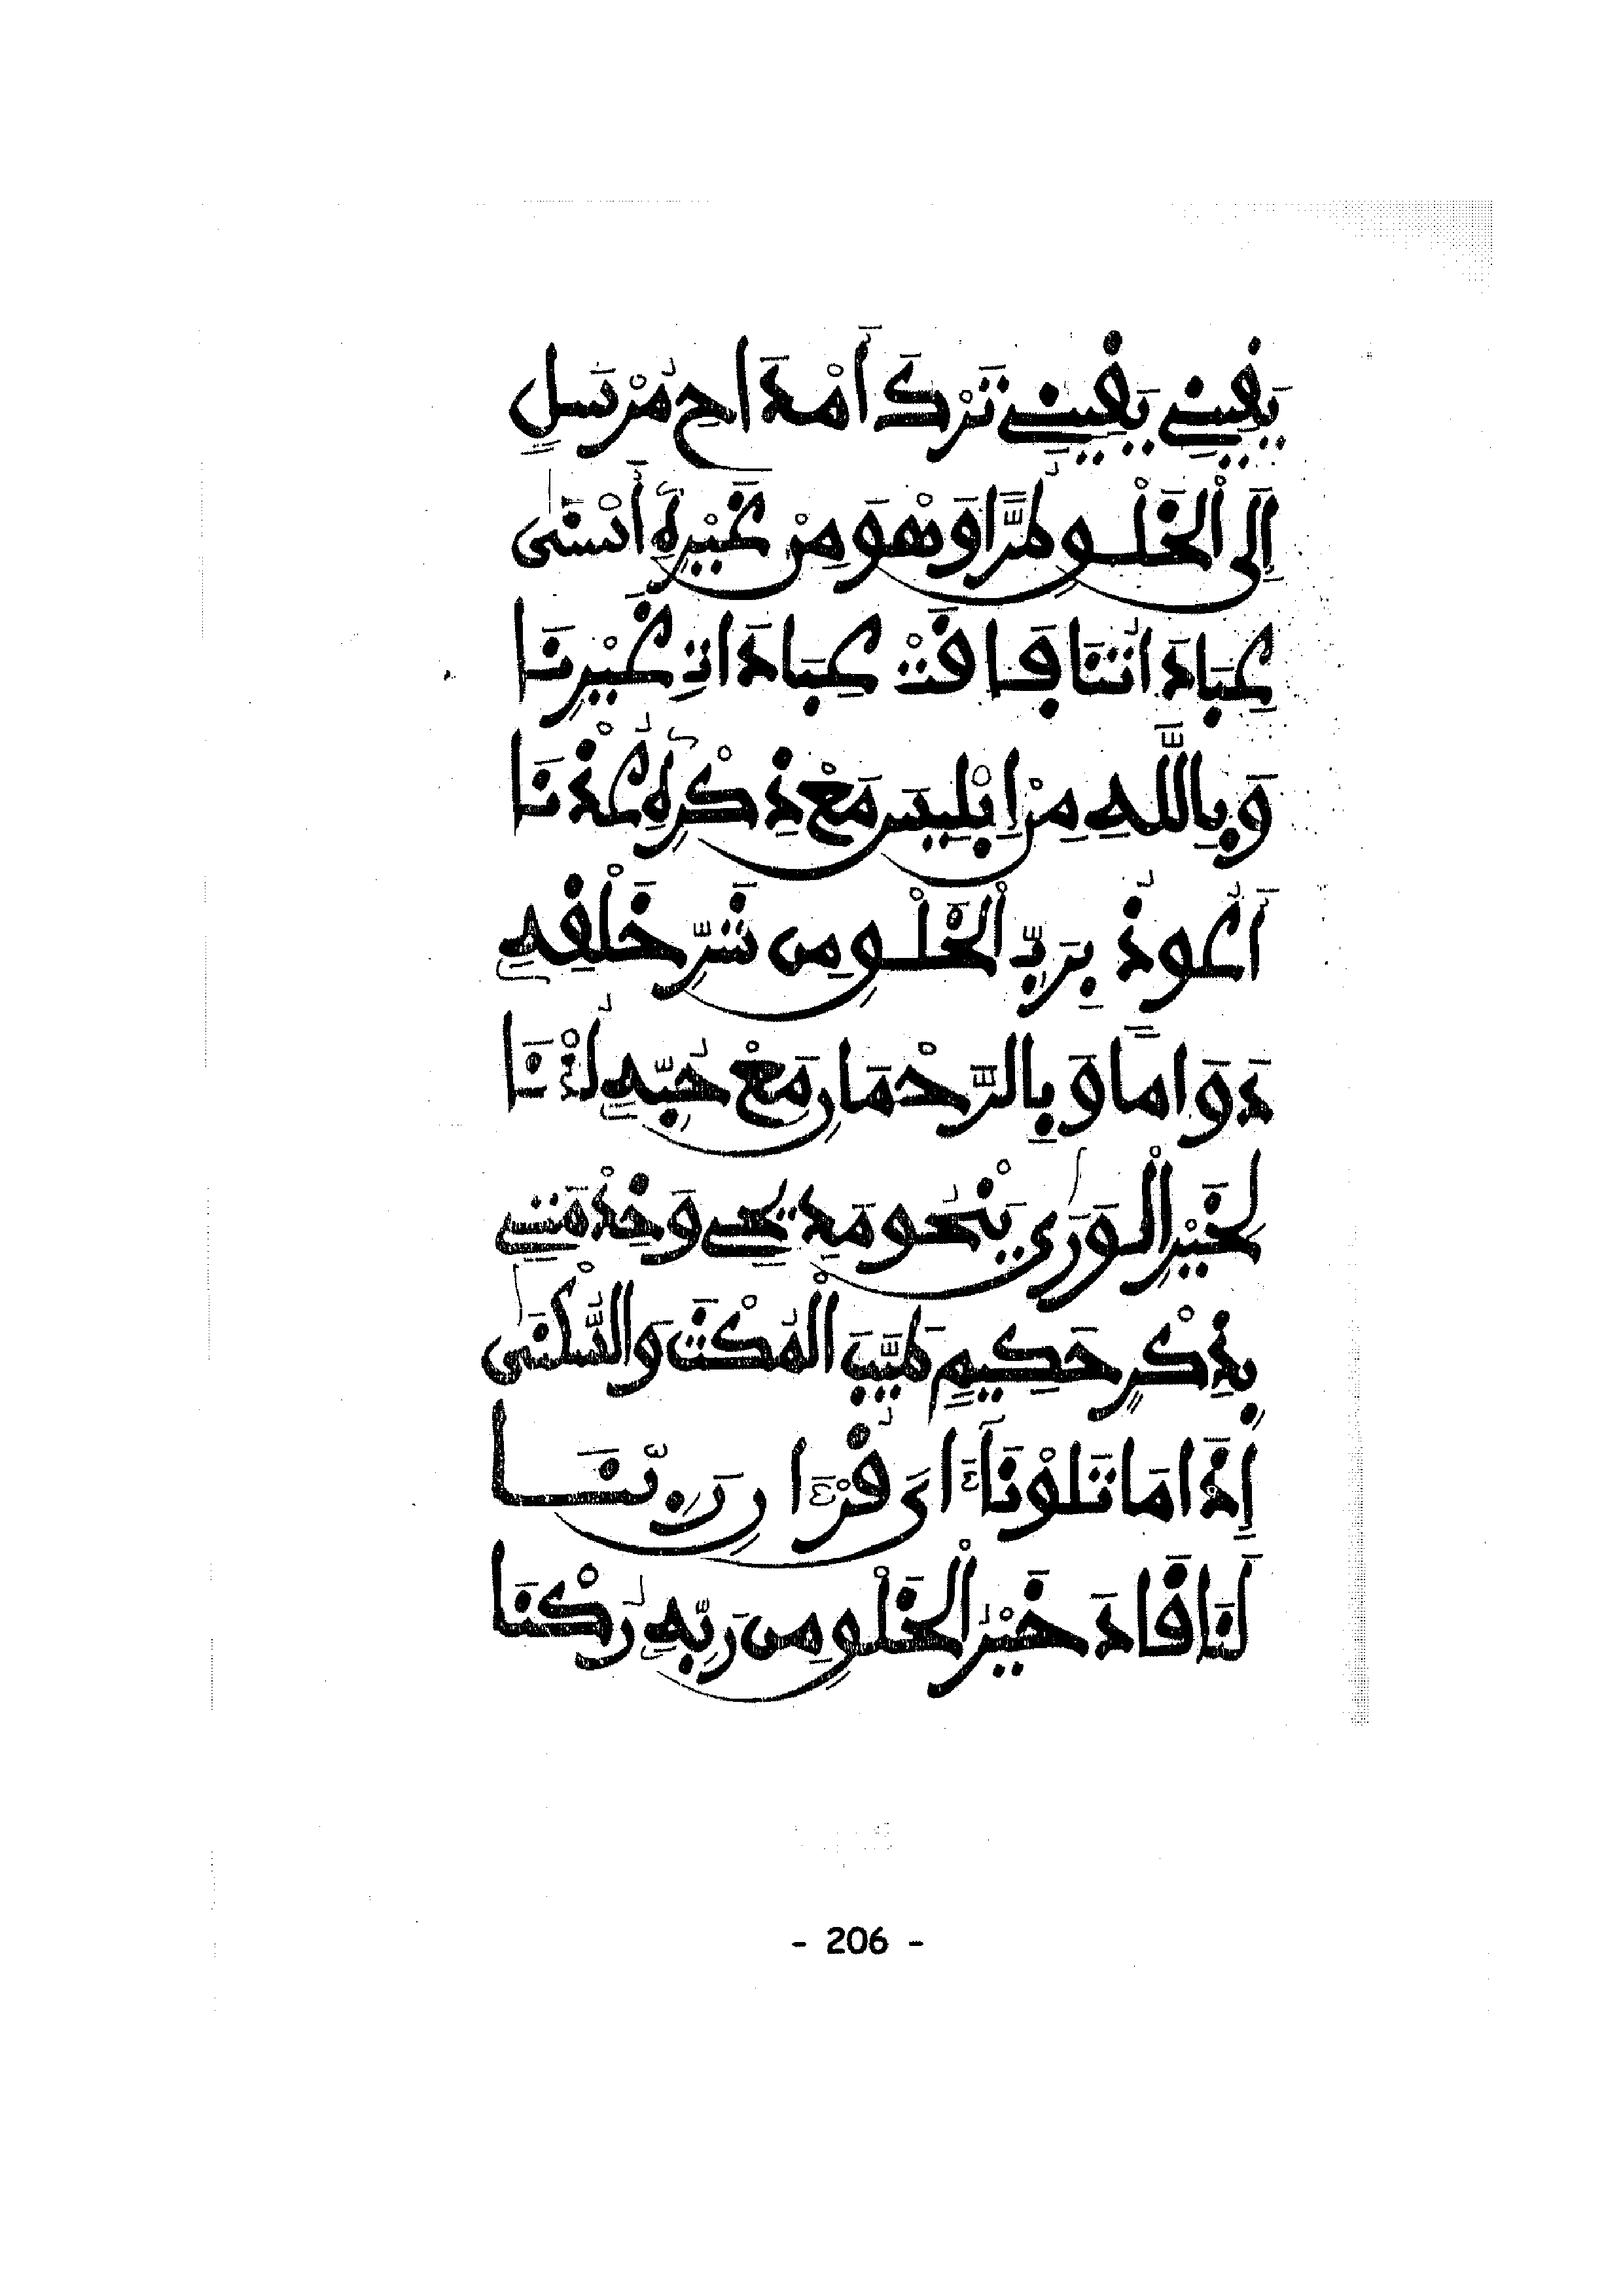 يَقِينِي يَقِينِي تَرْكَ أَمْدَاحِ مُرْسَلِ
إِلَى الْخَلْقِ طُرًّا وَهْوَ مِنْ غَيْرِهِ أَسْنَى
عِبَادَاتُنَا فَاقَتْ عِبَادَاتِ غَيْرِنَا
وَبِاللَّهِ مِنْ إِبْلِيسَ مَعْ ذِكْرِهِ عُذْنَا
أَعُوذُ بِرَبِّ الْخَلْقِ مِن شَرِّ خَلْقِهِ
دَوَامًا وَبِالرَّحْمَانِ مَعْ حُبِّهِ لُذْنَا
لِخَيْرِ الْوَرَى يَنْحُو مَدِيحِي وَخِدْمَتِي
بِذِكْرٍ حَكِيمٍ طَيَّبَ الْمُكْثَ وَالسُّكْنَى
إِذَا مَا تَلَوْنَا ءَايَ قُرْءَانِ رَبِّنَا
لَنَا قَادَ خَيْرُ الْخَلْقِ مِن رَبِّهِ رُكْنَا
- 206 -